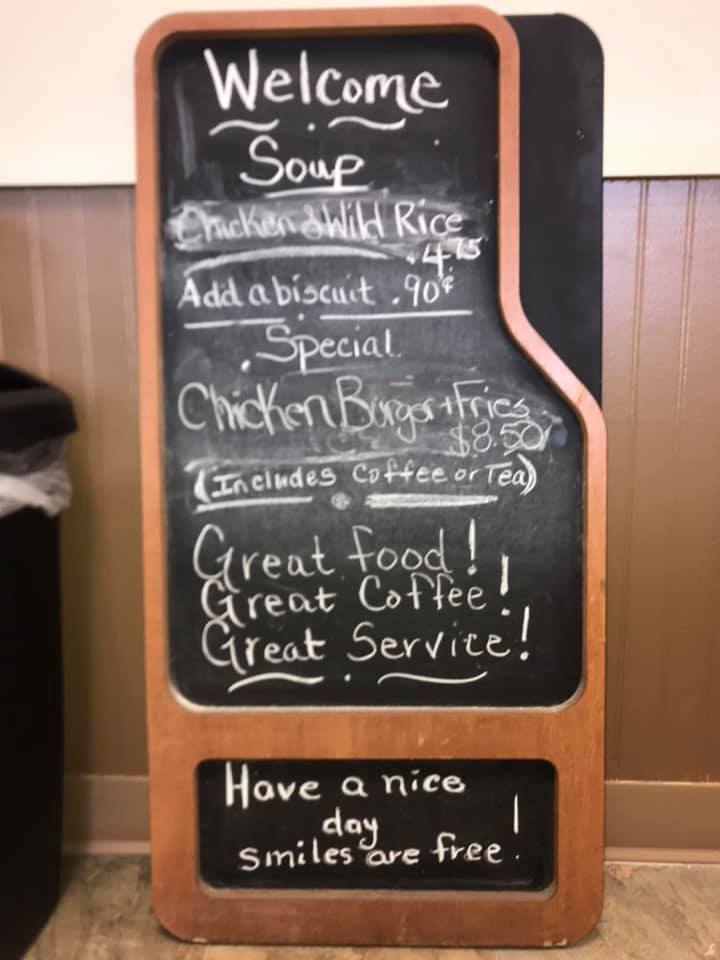 Welcome
Soup
Chicken & Wild Rice
4.75
Add a biscuit .90¢
Special
Chicken Burger + Fries
$8.50
(Includes Coffee or Tea)
Great food!
Great Coffee!
Great Service!
Have a nice
day
smiles are free!